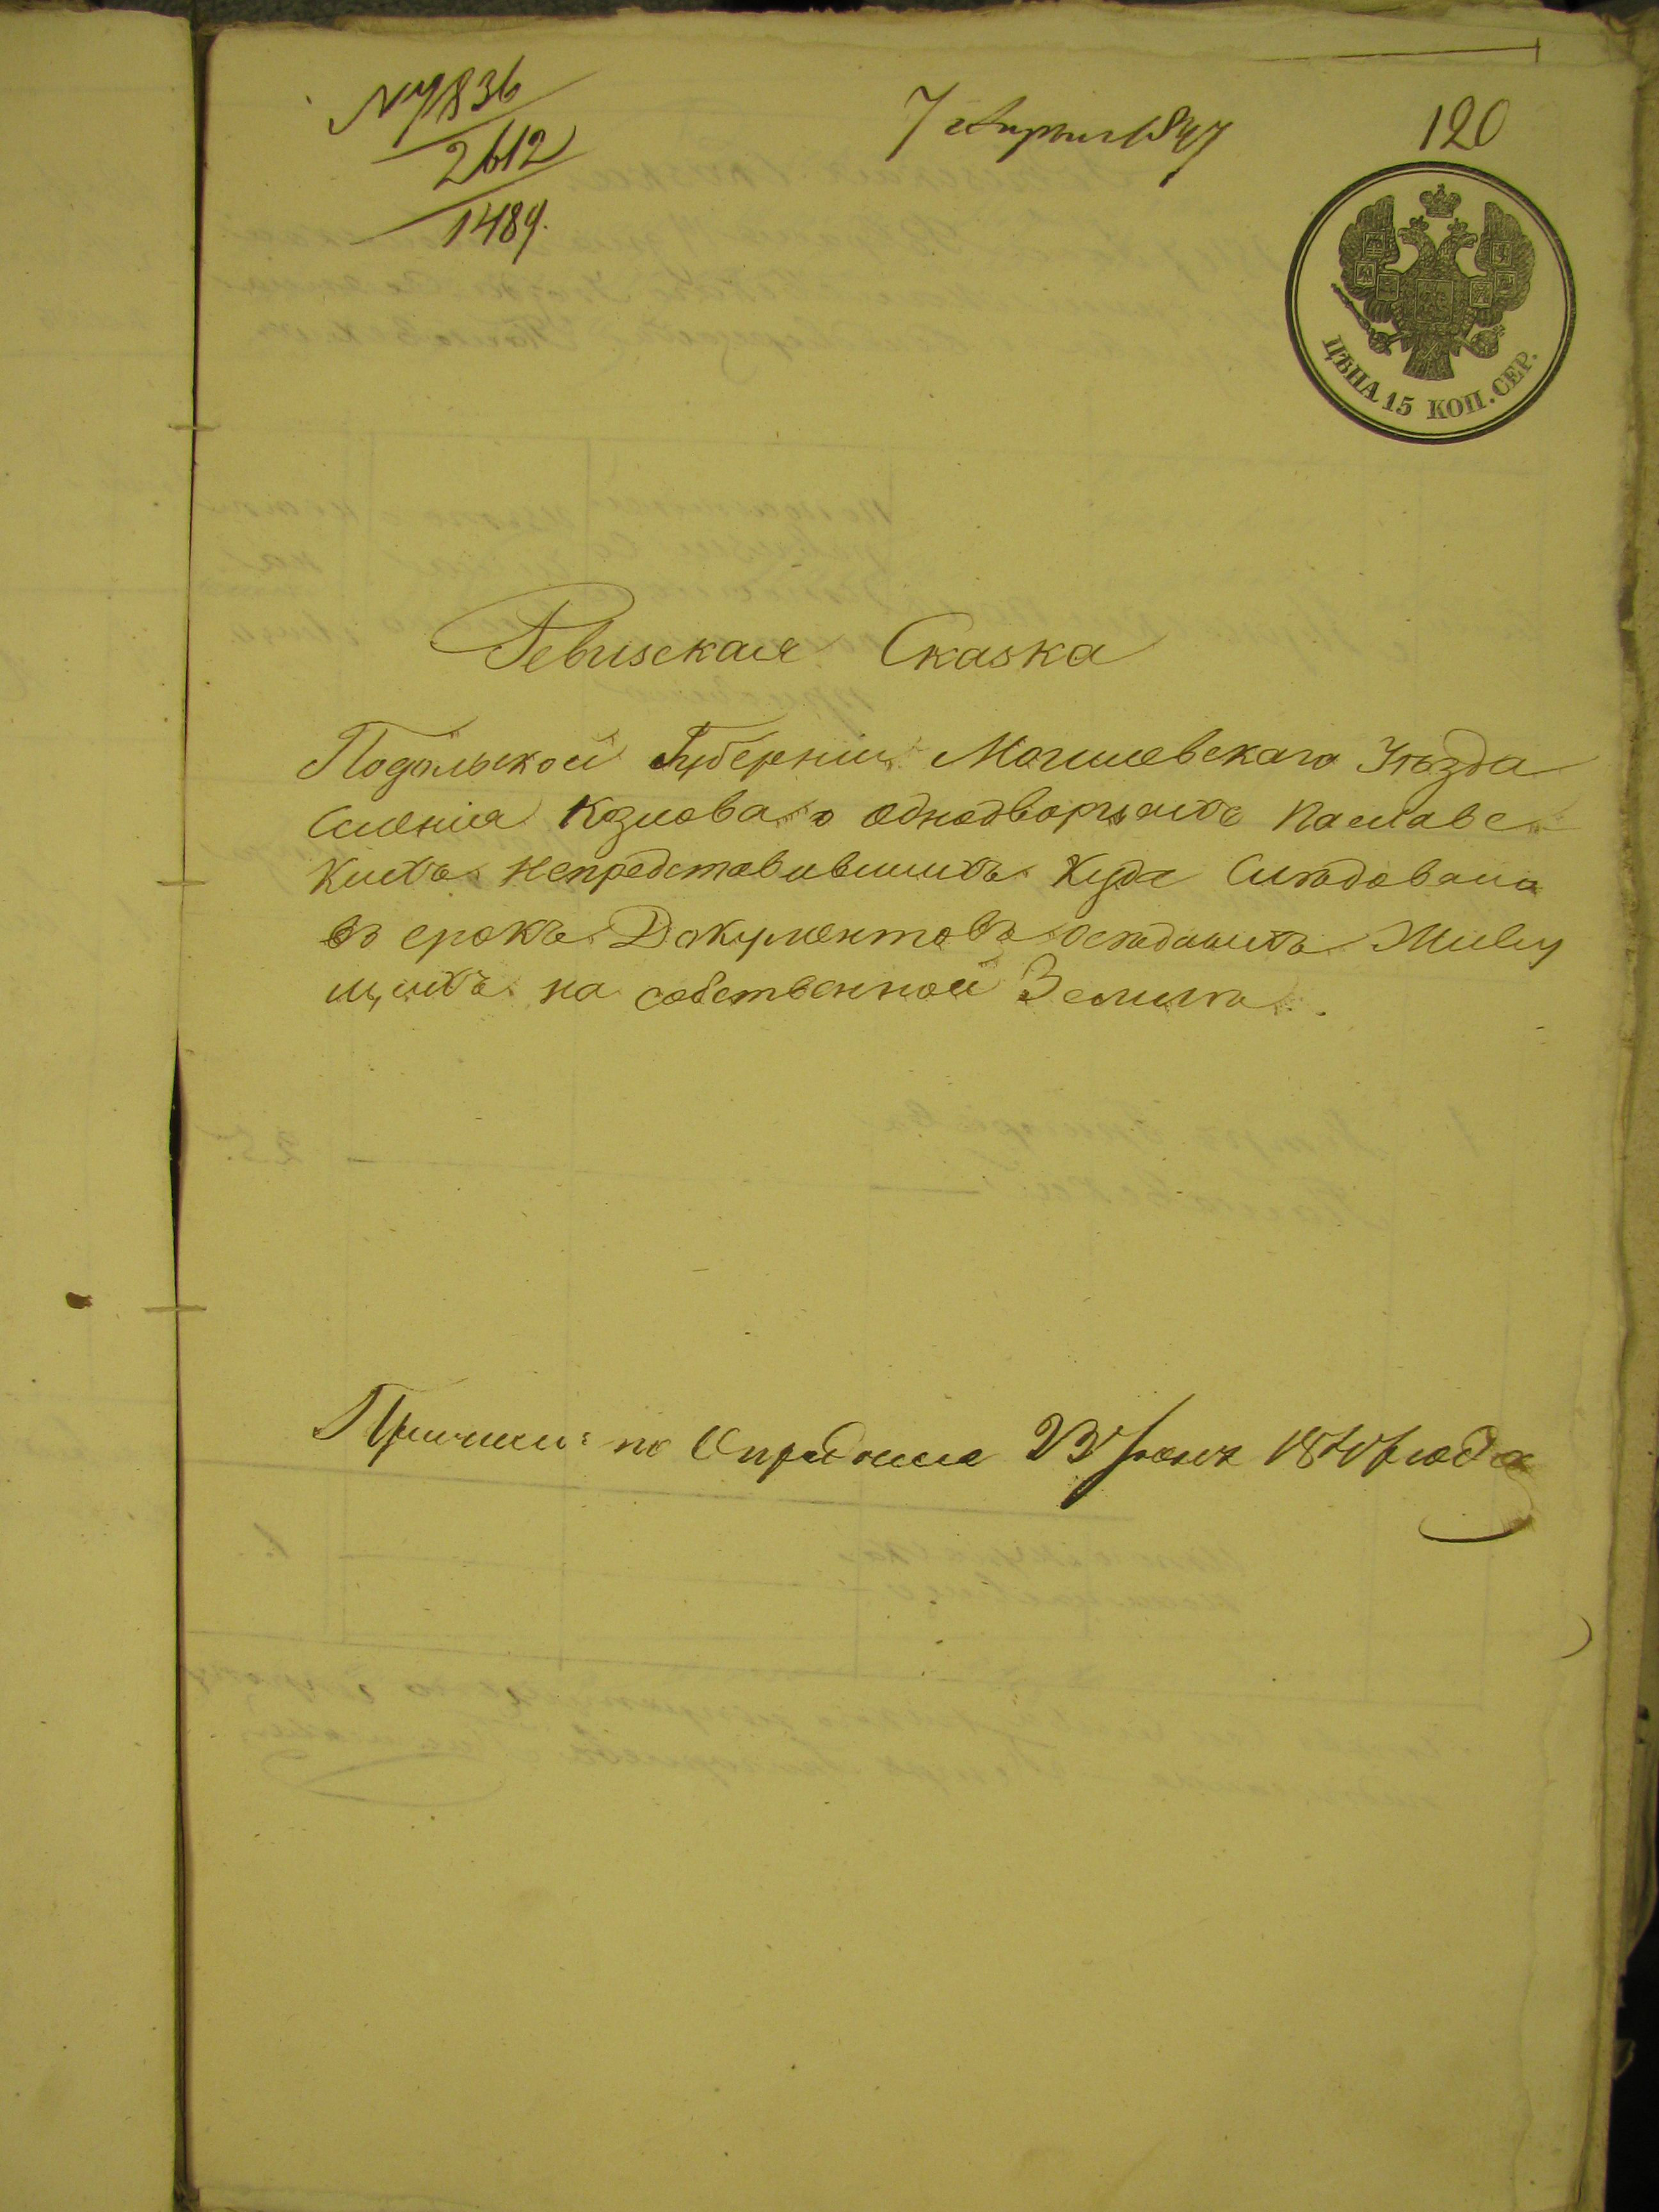 № 7836
2612
1489.
7 Апреля 1847
120
ЦѢНА 15 КОП. СЕР.
Ревизская Сказка
Подольской Губернии Могилевскаго Уѣзда
Селения Козлова о однодворцахъ Паславс
кихъ непредставившихъ куда Слѣдовало
въ срокъ Документовъ осѣдлихъ Живу
щихъ на собственной Землѣ.
по 23 1847 года